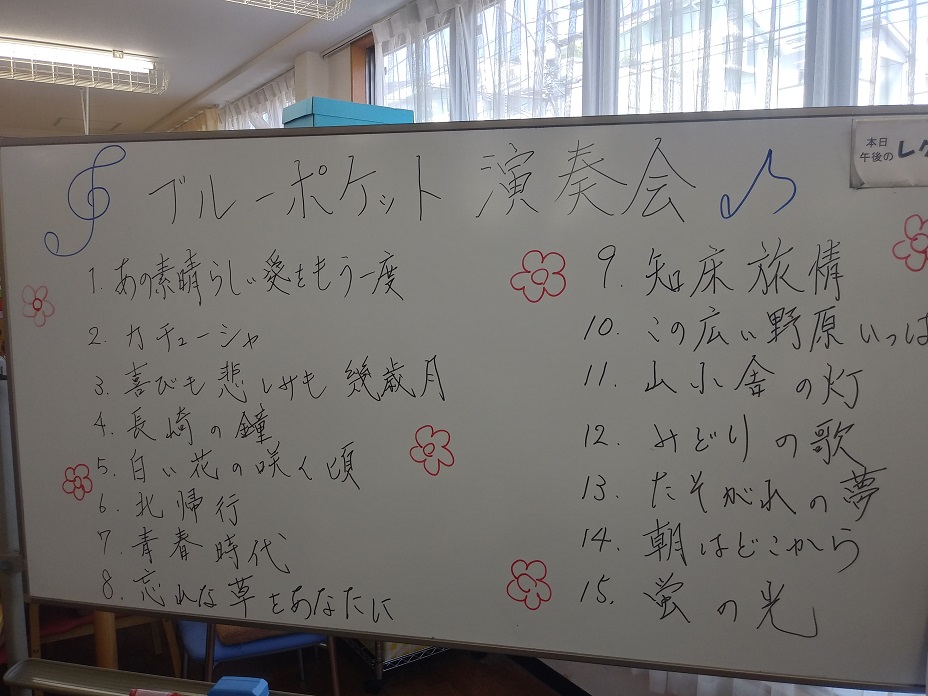 ブルーポケット 演奏会
本日
午後のレク
1. あの素晴らしい愛をもう一度
2. カチューシャ
3. 喜びも悲しみも幾歳月
4. 長崎の鐘
5. 白い花の咲く頃
6. 北帰行
7. 青春時代
8. 忘れな草をあなたに
9. 知床旅情
10. この広い野原いっぱ
11. 山小舎の灯
12. みどりの歌
13. たそがれの夢
14. 朝はどこから
15. 蛍の光